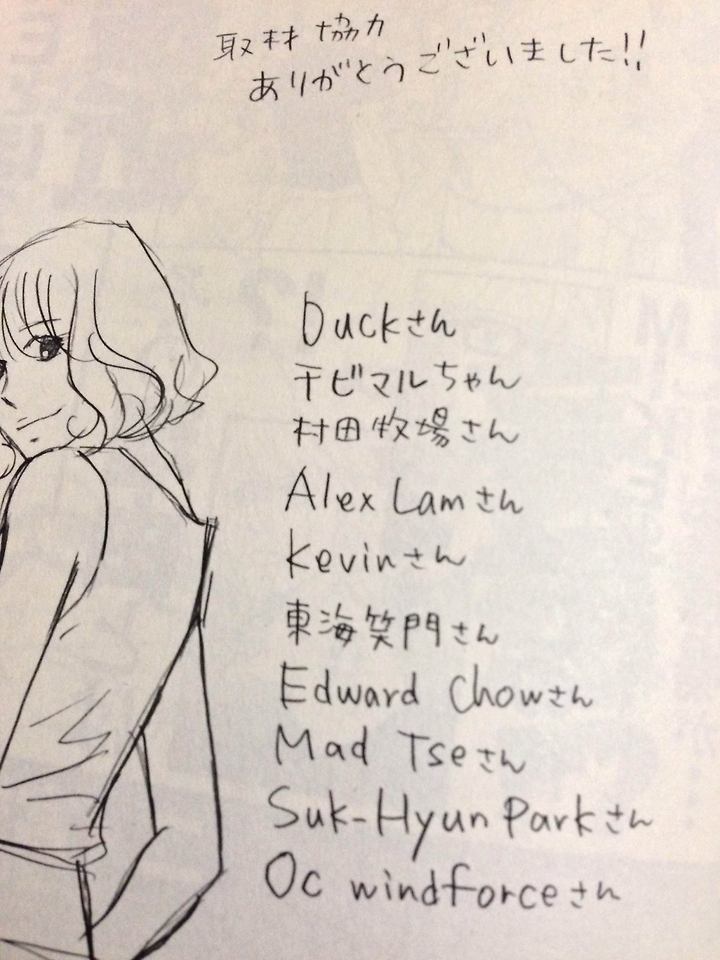 取材協力
ありがとうございました!!
Duckさん
チビマルちゃん
村田牧場さん
Alex Lamさん
Kevinさん
東海笑門さん
Edward Chowさん
Mad Tseさん
Suk-Hyun Parkさん
Oc windforceさん